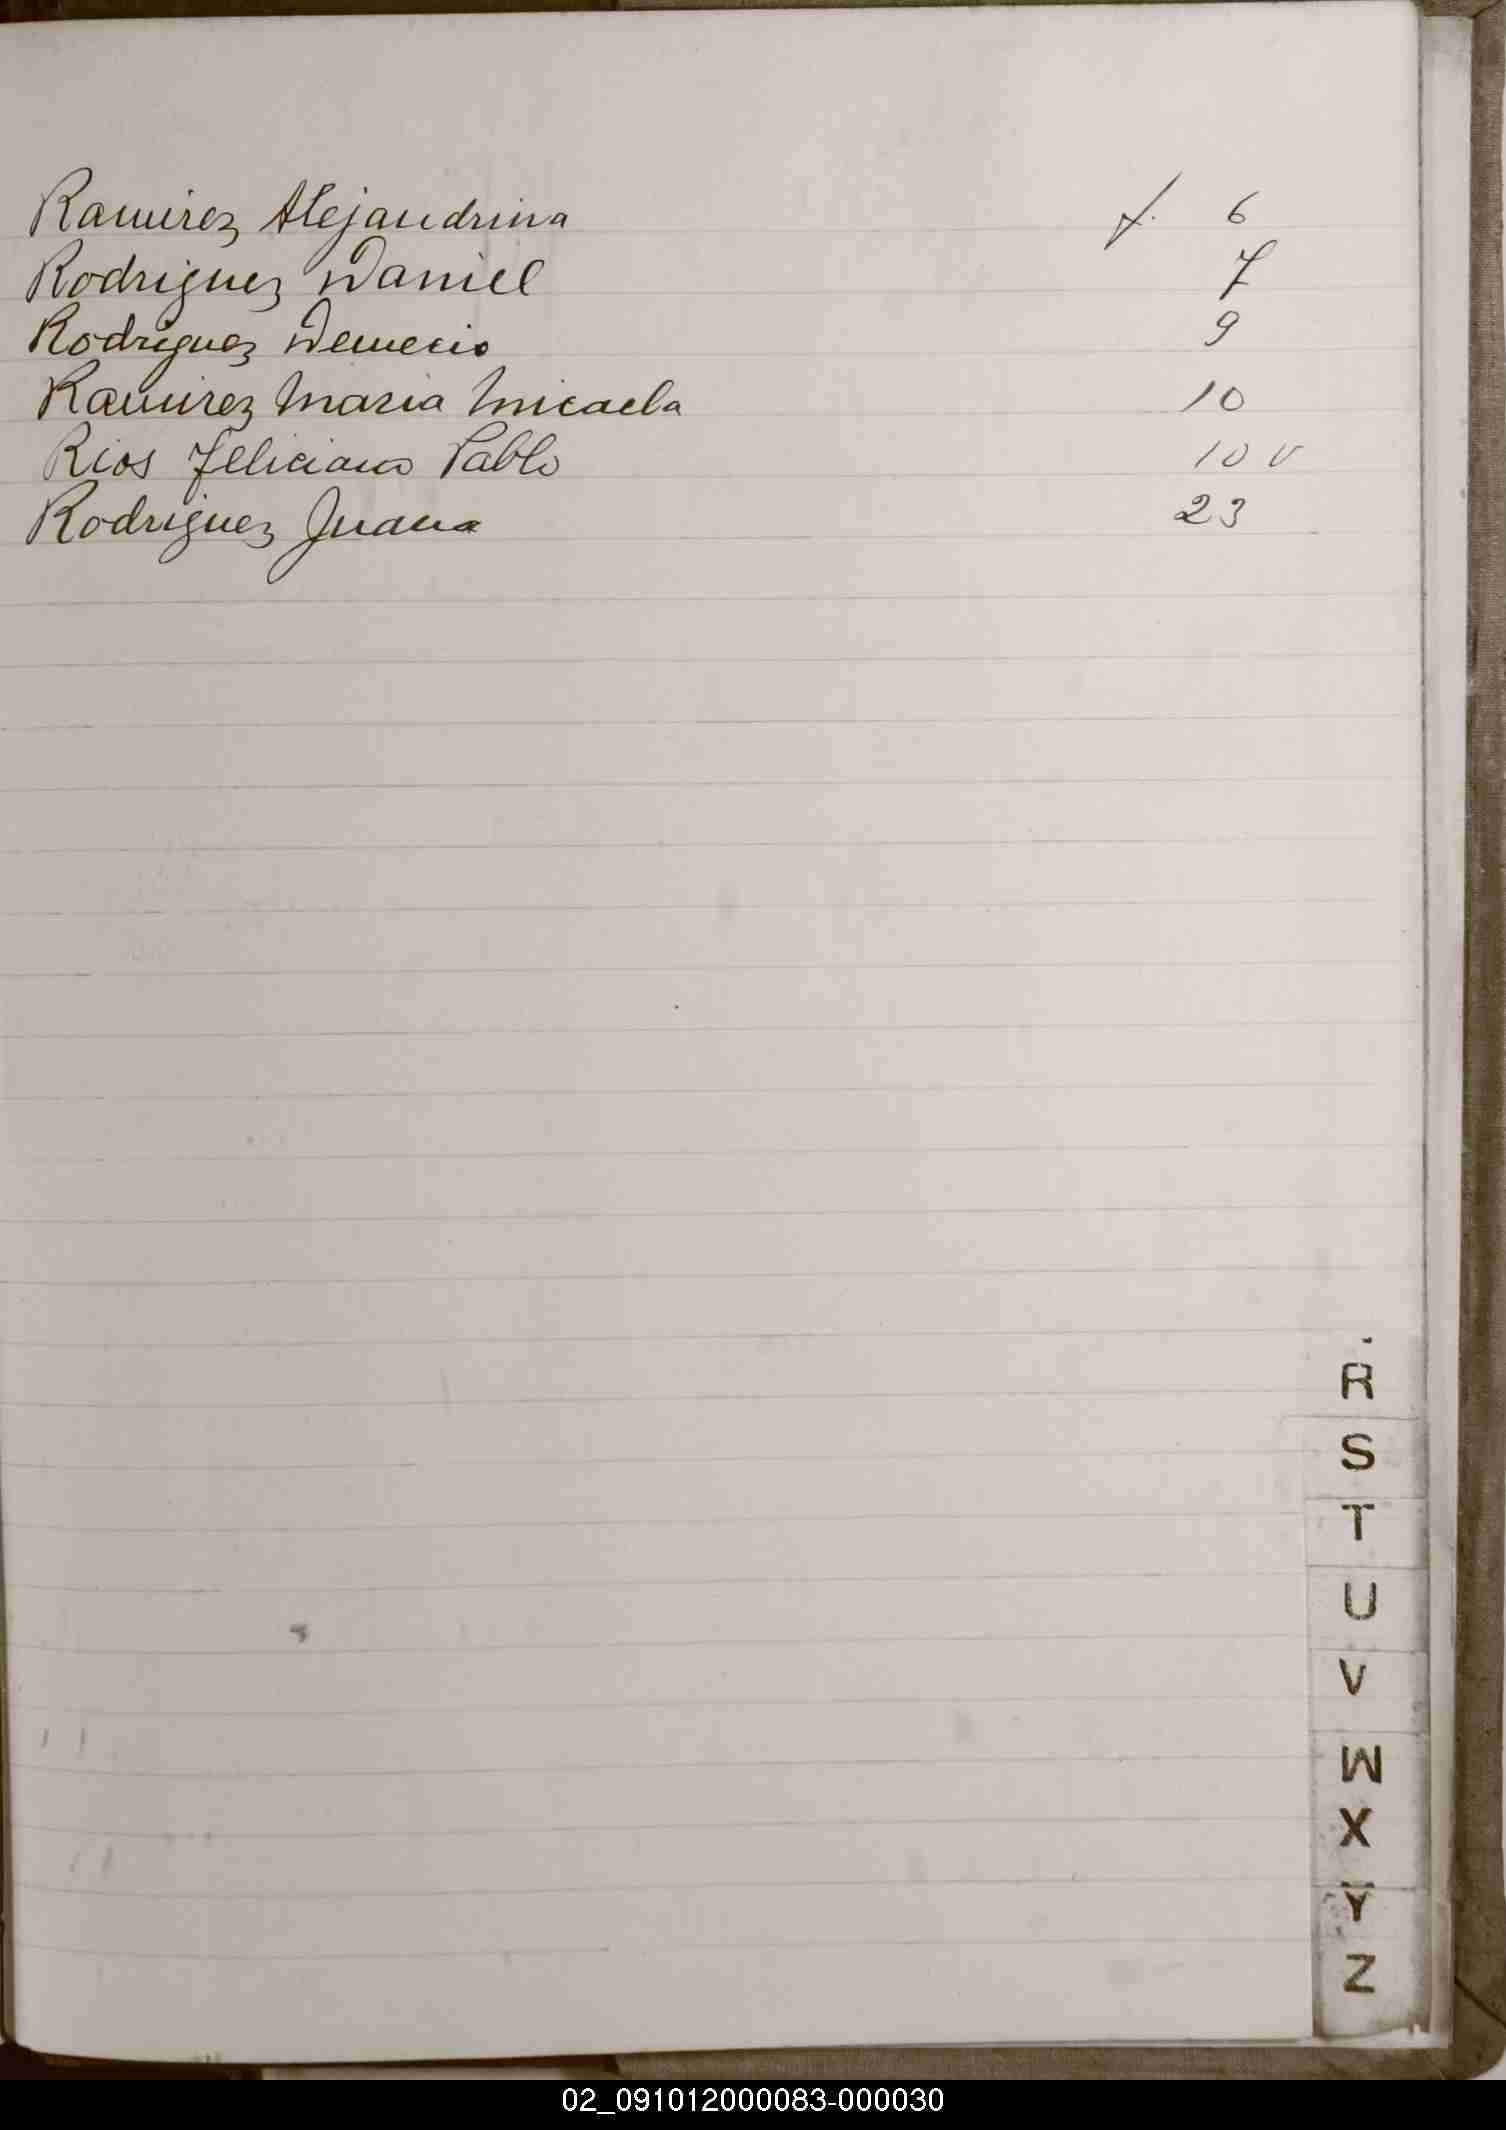 Ramirez Alejandrina f. 6
Rodriguez Daniel 7
Rodriguez Demecio 9
Ramirez Maria Micaela 10
Rios Feliciano Pablo 10 v
Rodriguez Juana 23
R
S
T
U
V
W
X
Y
Z
02_091012000083-000030